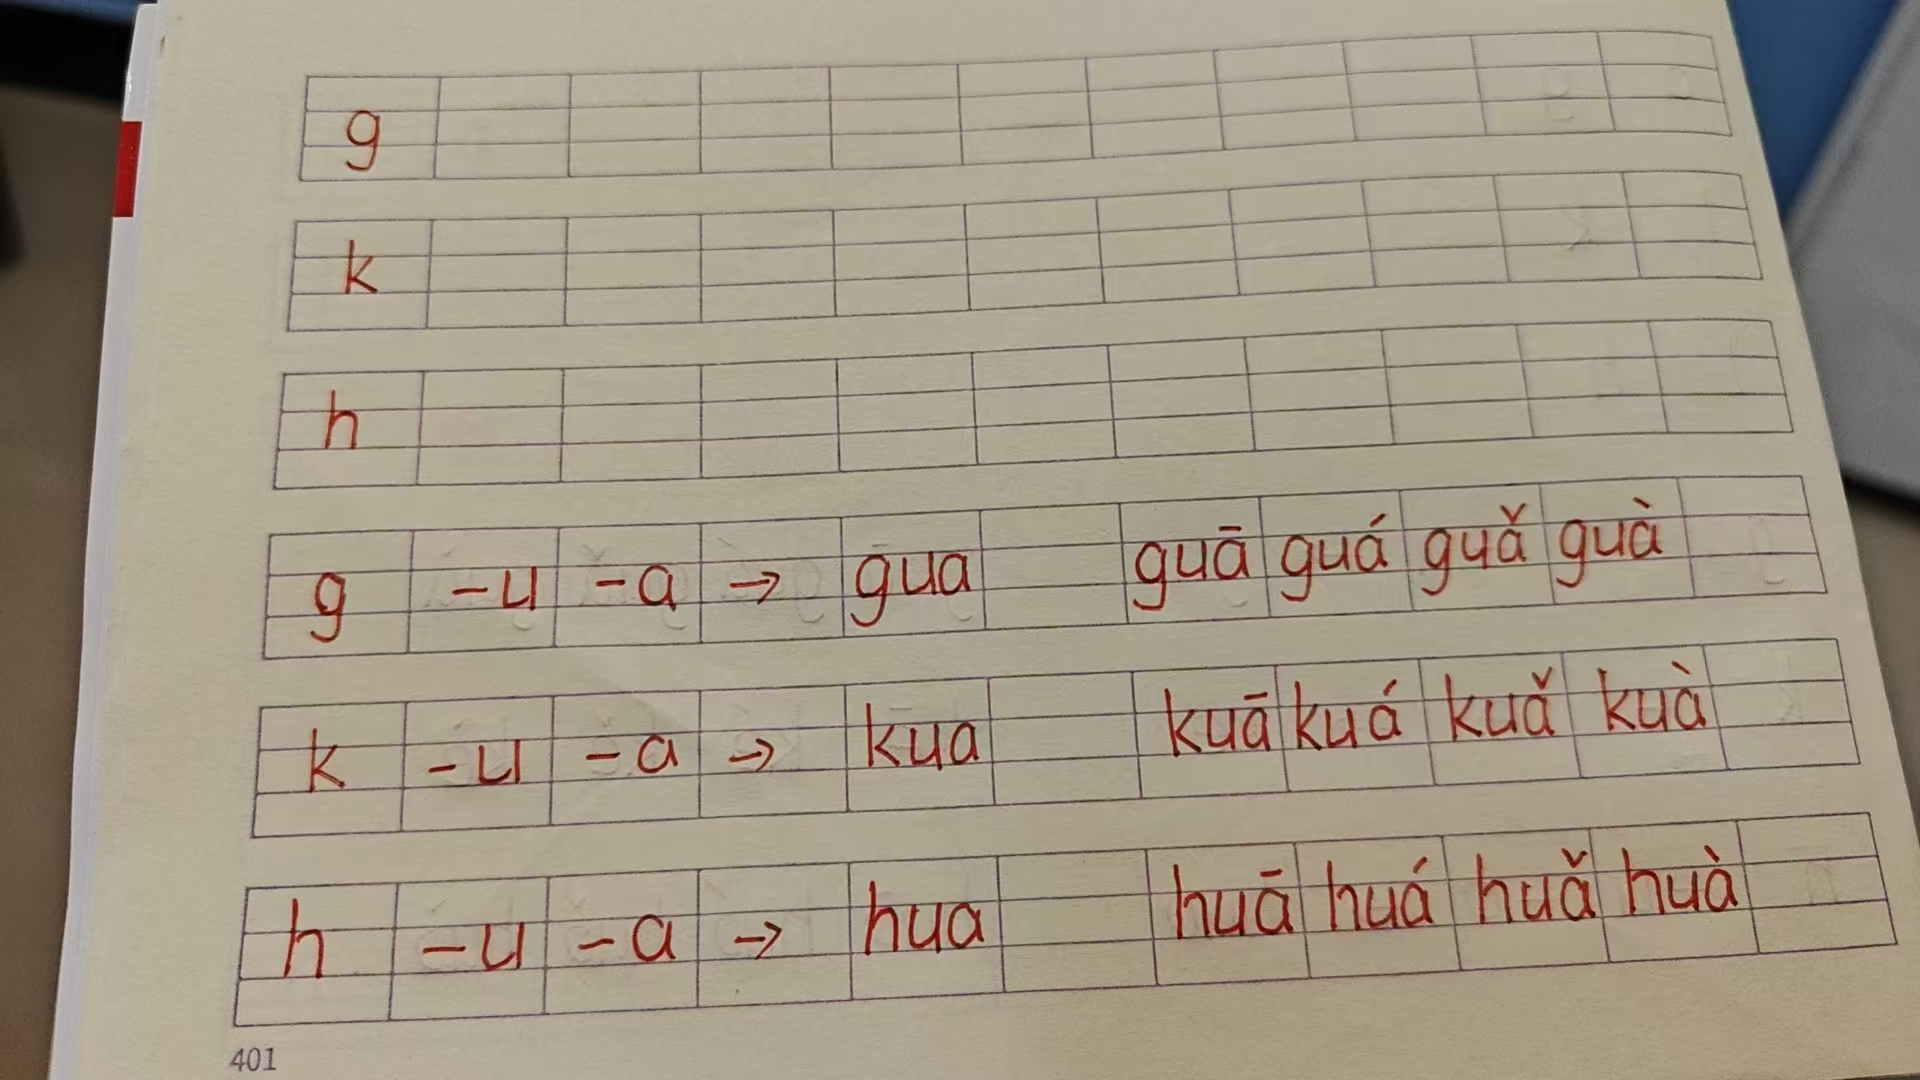 g
k
h
g -u -a → gua guā guá guǎ guà
k -u -a → kua kuā kuá kuǎ kuà
h -u -a → hua huā huá huǎ huà
401